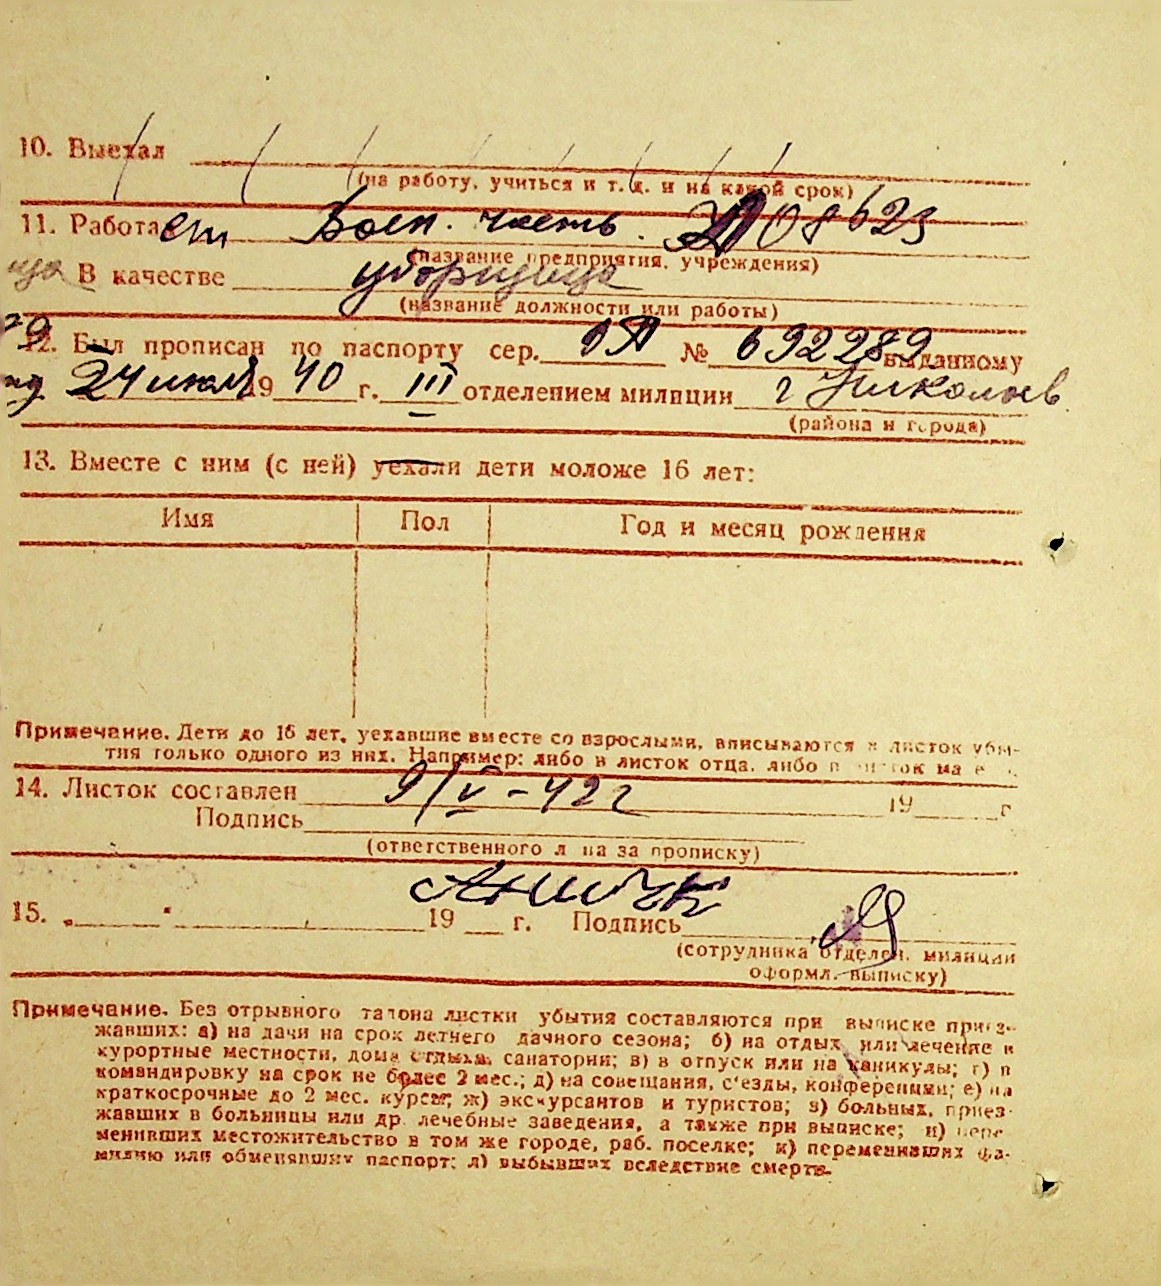 10. Выехал
(на работу, учиться и т. д. и на какой срок)
11. Работает Воен. часть. 08623
(название предприятия, учреждения)
В качестве уборщица
(название должности или работы)
12. Был прописан по паспорту сер. № 692289 выданному
24 июля 1940 г. III отделением милиции г Николаев
(района и города)
13. Вместе с ним (с ней) уехали дети моложе 16 лет:
Имя Пол Год и месяц рождения
Примечание. Дети до 16 лет, уехавшие вместе со взрослыми, вписываются в листок убы-
тия только одного из них. Например: либо в листок отца, либо в листок
14. Листок составлен 9/V-42г 19 г
Подпись
(ответственного лица за прописку)
15. 19 г. Подпись
(сотрудника отделен. милиции
оформл. выписку)
Примечание. Без отрывного талона листки убытия составляются при выписке приез-
жавших: а) на дачи на срок летнего дачного сезона; б) на отдых или лечение в
курортные местности, дома отдыха, санатории; в) в отпуск или на каникулы; г) в
командировку на срок не более 2 мес.; д) на совещания, с'езды, конференции; е) на
краткосрочные до 2 мес. курсы; ж) экскурсантов и туристов; з) больных, приез-
жавших в больницы или др. лечебные заведения, а также при выписке; и) пере-
менивших местожительство в том же городе, раб. поселке; к) переменивших фа-
милию или обменявших паспорт; л) выбывших вследствие смерти.